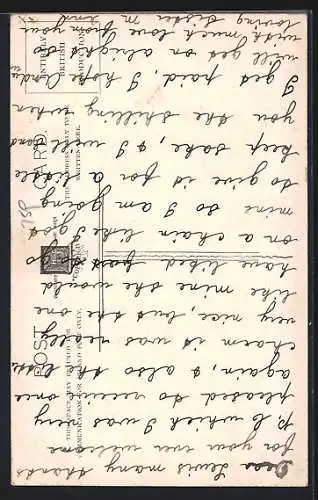 Dear Lewis many thanks
for your ever welcome
p.c which I was very
pleased to receive once
again, & also the little
charm it was really
very nice, but she one
like mine she would
have liked just so to go
on a chain like I got
mine so I am going
to give it for a little
keep sake, & I will send
you the shilling when
I get paid, I hope
will get on alright so
with much love from your
loving sister M
POST CARD.
THIS SPACE MAY BE USED FOR
COMMUNICATION FOR INLAND POST ONLY.
THE ADDRESS ONLY TO
BE WRITTEN HERE.
ENTIRELY
BRITISH
PRODUCTION
750